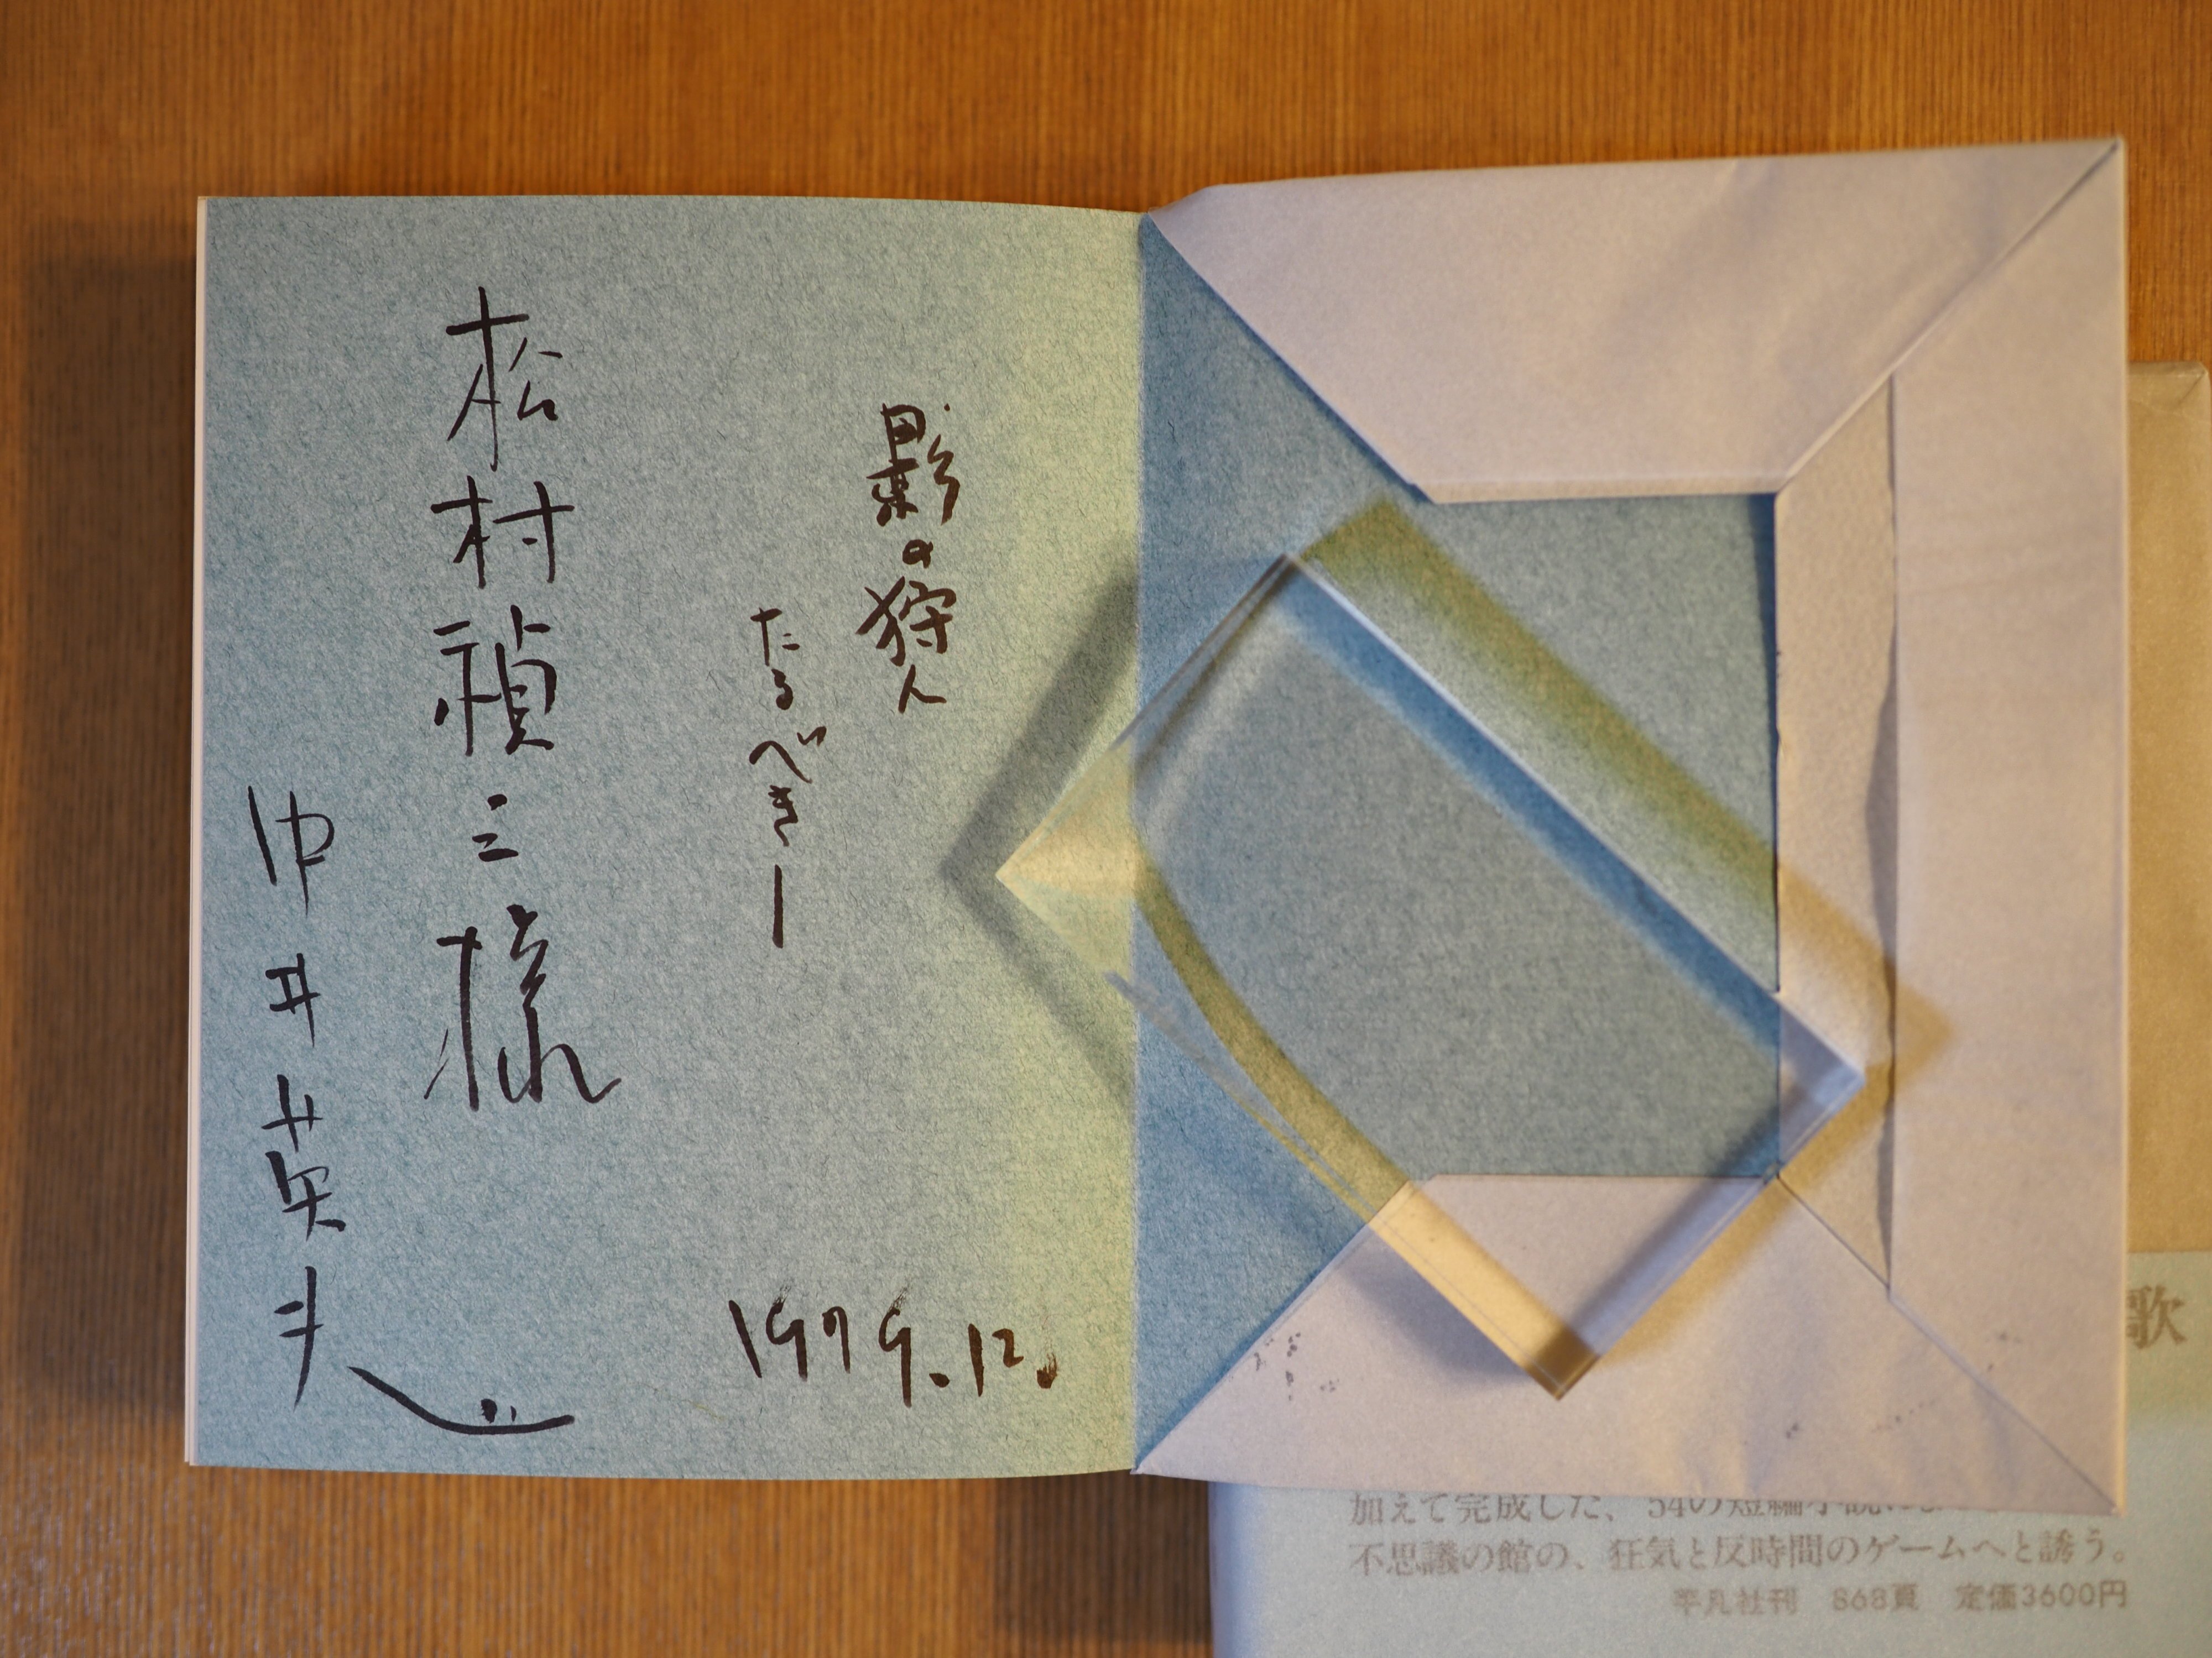 影の狩人
たるべき一
松村禎三様
中井英夫
1979.12.
歌
加えて完成した、54の短編小説
不思議の館の、狂気と反時間のゲームへと誘う。
平凡社刊 868頁 定価3600円